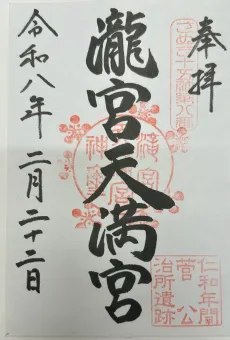 奉拝
さぬき十五社第八番
瀧宮天満宮
仁和年間
菅公
治所遺跡
令和八年 二月二十二日